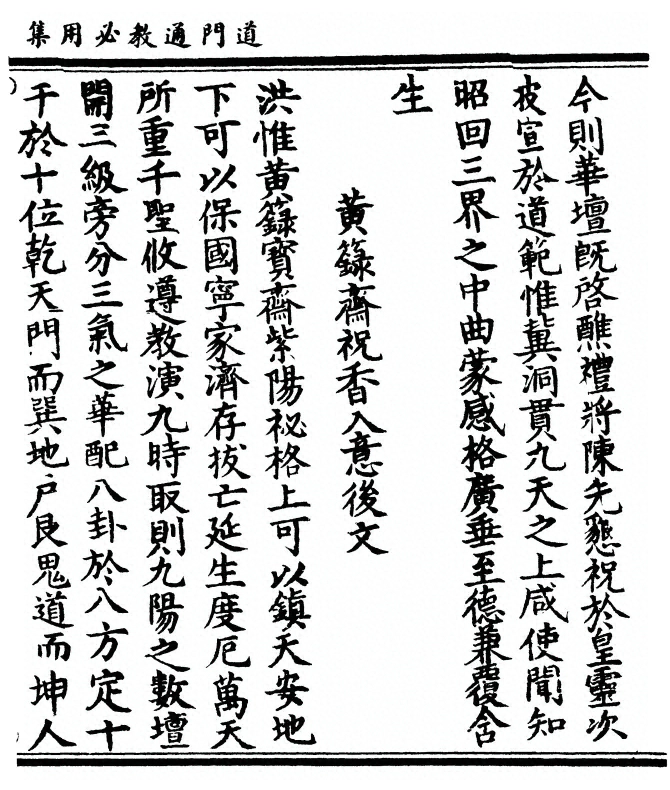 道門通教必用集
今則華壇既啓醮禮將陳先懇祝於皇靈次
披宣於道範惟冀洞貫九天之上咸使聞知
昭回三界之中曲蒙感格廣垂至德兼覆含
生
黄籙齋祝香入意後文
洪惟黄籙寳齋紫陽祕格上可以鎮天安地
下可以保國寧家濟存拔亡延生度厄萬天
所重千聖攸遵教演九時取則九陽之數壇
開三級旁分三氣之華配八卦於八方定十
干於十位乾天門而巽地户艮鬼道而坤人